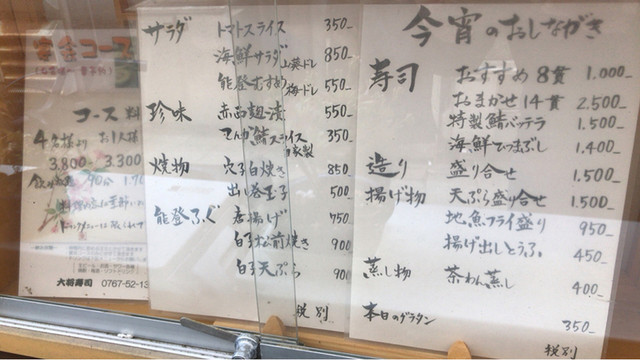 今宵のおしながき
寿司 おすすめ8貫 1.000-
おまかせ14貫 2.500-
特製鯖バッテラ 1.500-
海鮮ひつまぶし 1.400-
造り 盛り合せ 1.500-
揚げ物 天ぷら盛り合せ 1.500-
地魚フライ盛り 950-
揚げ出しとうふ 450-
蒸し物 茶わん蒸し 400-
本日のグラタン 350-
税別
サラダ トマトスライス 350-
海鮮サラダ 山葵ドレ 850-
能登むすめ 梅ドレ 550-
珍味 550-
スライス 自家製 350-
焼物 穴子白焼き 850
出し巻玉子 500
能登ふぐ 唐揚げ 750
白子松前焼き 900
白子天ぷら 900
税別
宴会コース
コース料
4名様より お1人様
3.800- 3.300
90分
大将寿司 0767-52-13